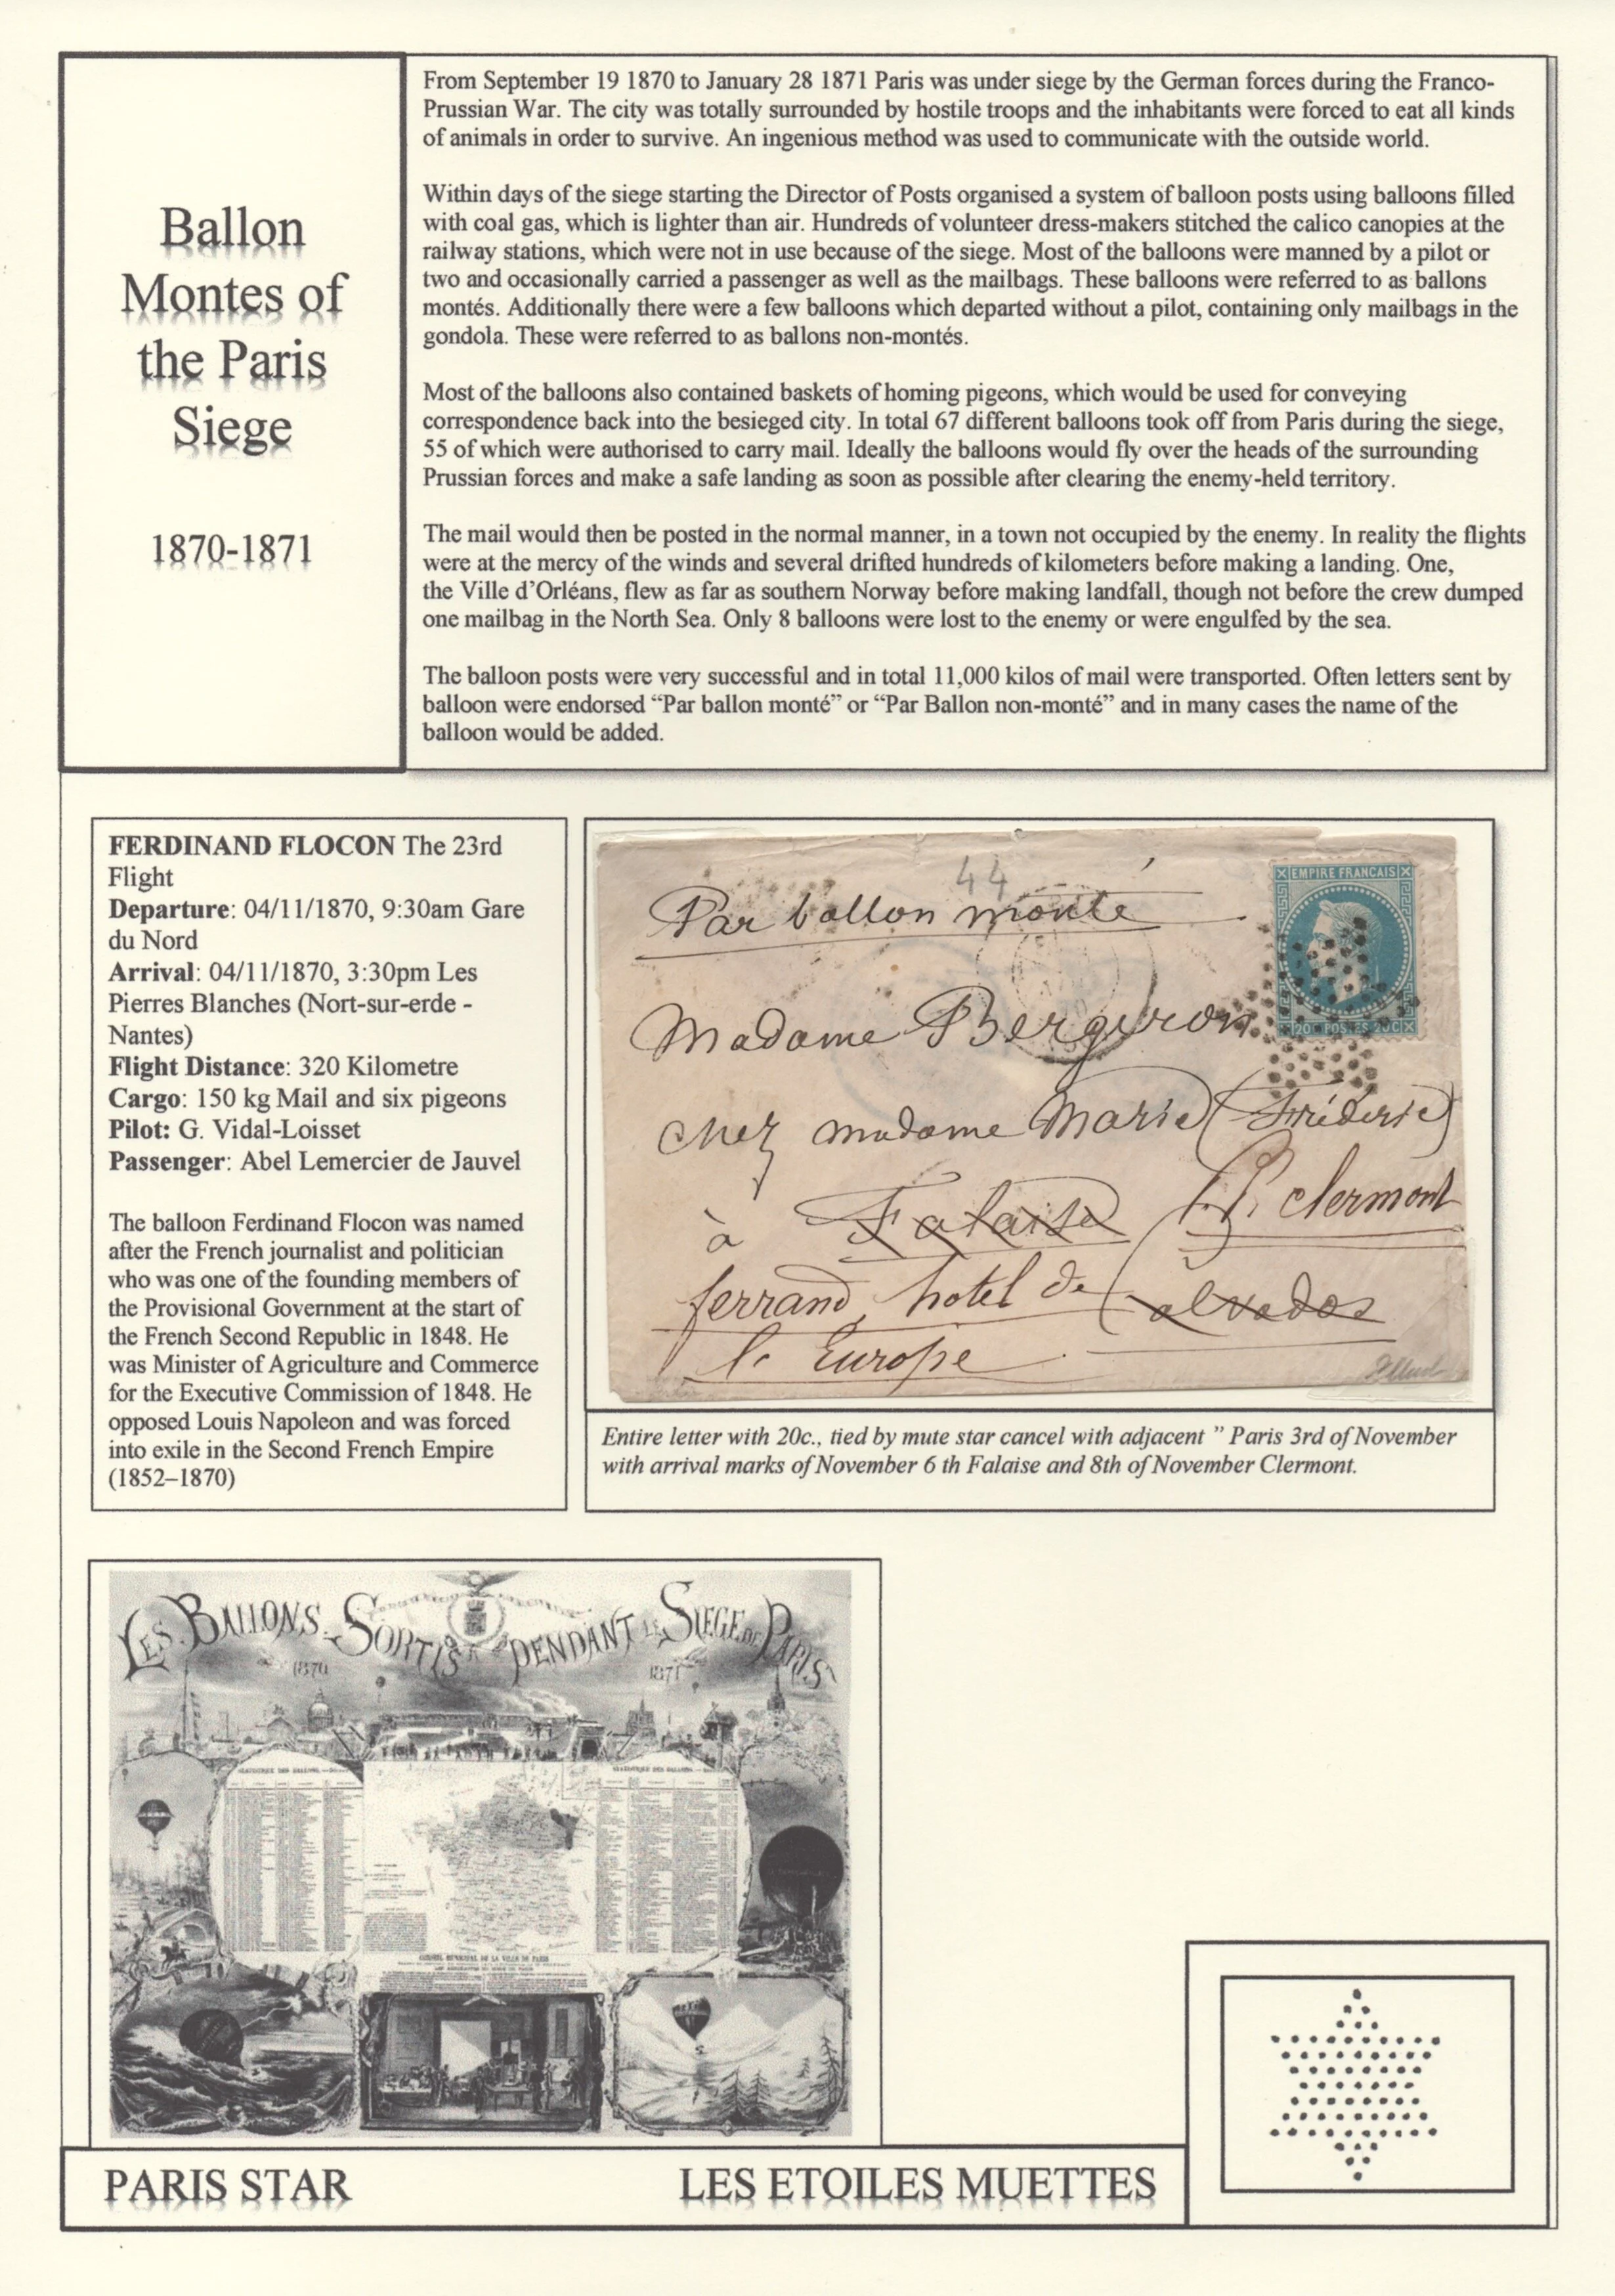 Ballon
Montes of
the Paris
Siege
1870-1871
From September 19 1870 to January 28 1871 Paris was under siege by the German forces during the Franco-
Prussian War. The city was totally surrounded by hostile troops and the inhabitants were forced to eat all kinds
of animals in order to survive. An ingenious method was used to communicate with the outside world.
Within days of the siege starting the Director of Posts organised a system of balloon posts using balloons filled
with coal gas, which is lighter than air. Hundreds of volunteer dress-makers stitched the calico canopies at the
railway stations, which were not in use because of the siege. Most of the balloons were manned by a pilot or
two and occasionally carried a passenger as well as the mailbags. These balloons were referred to as ballons
montés. Additionally there were a few balloons which departed without a pilot, containing only mailbags in the
gondola. These were referred to as ballons non-montés.
Most of the balloons also contained baskets of homing pigeons, which would be used for conveying
correspondence back into the besieged city. In total 67 different balloons took off from Paris during the siege,
55 of which were authorised to carry mail. Ideally the balloons would fly over the heads of the surrounding
Prussian forces and make a safe landing as soon as possible after clearing the enemy-held territory.
The mail would then be posted in the normal manner, in a town not occupied by the enemy. In reality the flights
were at the mercy of the winds and several drifted hundreds of kilometers before making a landing. One,
the Ville d’Orléans, flew as far as southern Norway before making landfall, though not before the crew dumped
one mailbag in the North Sea. Only 8 balloons were lost to the enemy or were engulfed by the sea.
The balloon posts were very successful and in total 11,000 kilos of mail were transported. Often letters sent by
balloon were endorsed “Par ballon monté” or “Par Ballon non-monté” and in many cases the name of the
balloon would be added.
FERDINAND FLOCON The 23rd
Flight
Departure: 04/11/1870, 9:30am Gare
du Nord
Arrival: 04/11/1870, 3:30pm Les
Pierres Blanches (Nort-sur-erde -
Nantes)
Flight Distance: 320 Kilometre
Cargo: 150 kg Mail and six pigeons
Pilot: G. Vidal-Loisset
Passenger: Abel Lemercier de Jauvel
The balloon Ferdinand Flocon was named
after the French journalist and politician
who was one of the founding members of
the Provisional Government at the start of
the French Second Republic in 1848. He
was Minister of Agriculture and Commerce
for the Executive Commission of 1848. He
opposed Louis Napoleon and was forced
into exile in the Second French Empire
(1852–1870)
44
Par ballon monté
EMPIRE FRANCAIS
20C POSTES 20C
Madame Bergeron
chez madame Marie (Fréderic)
à Falaise
Clermont
ferrand, hotel de
Calvados
l'Europe
Entire letter with 20c., tied by mute star cancel with adjacent ” Paris 3rd of November
with arrival marks of November 6 th Falaise and 8th of November Clermont.
LES BALLONS SORTIS PENDANT LE SIEGE DE PARIS
1870 1871
CONSEIL MUNICIPAL DE LA VILLE DE PARIS
PARIS STAR
LES ETOILES MUETTES